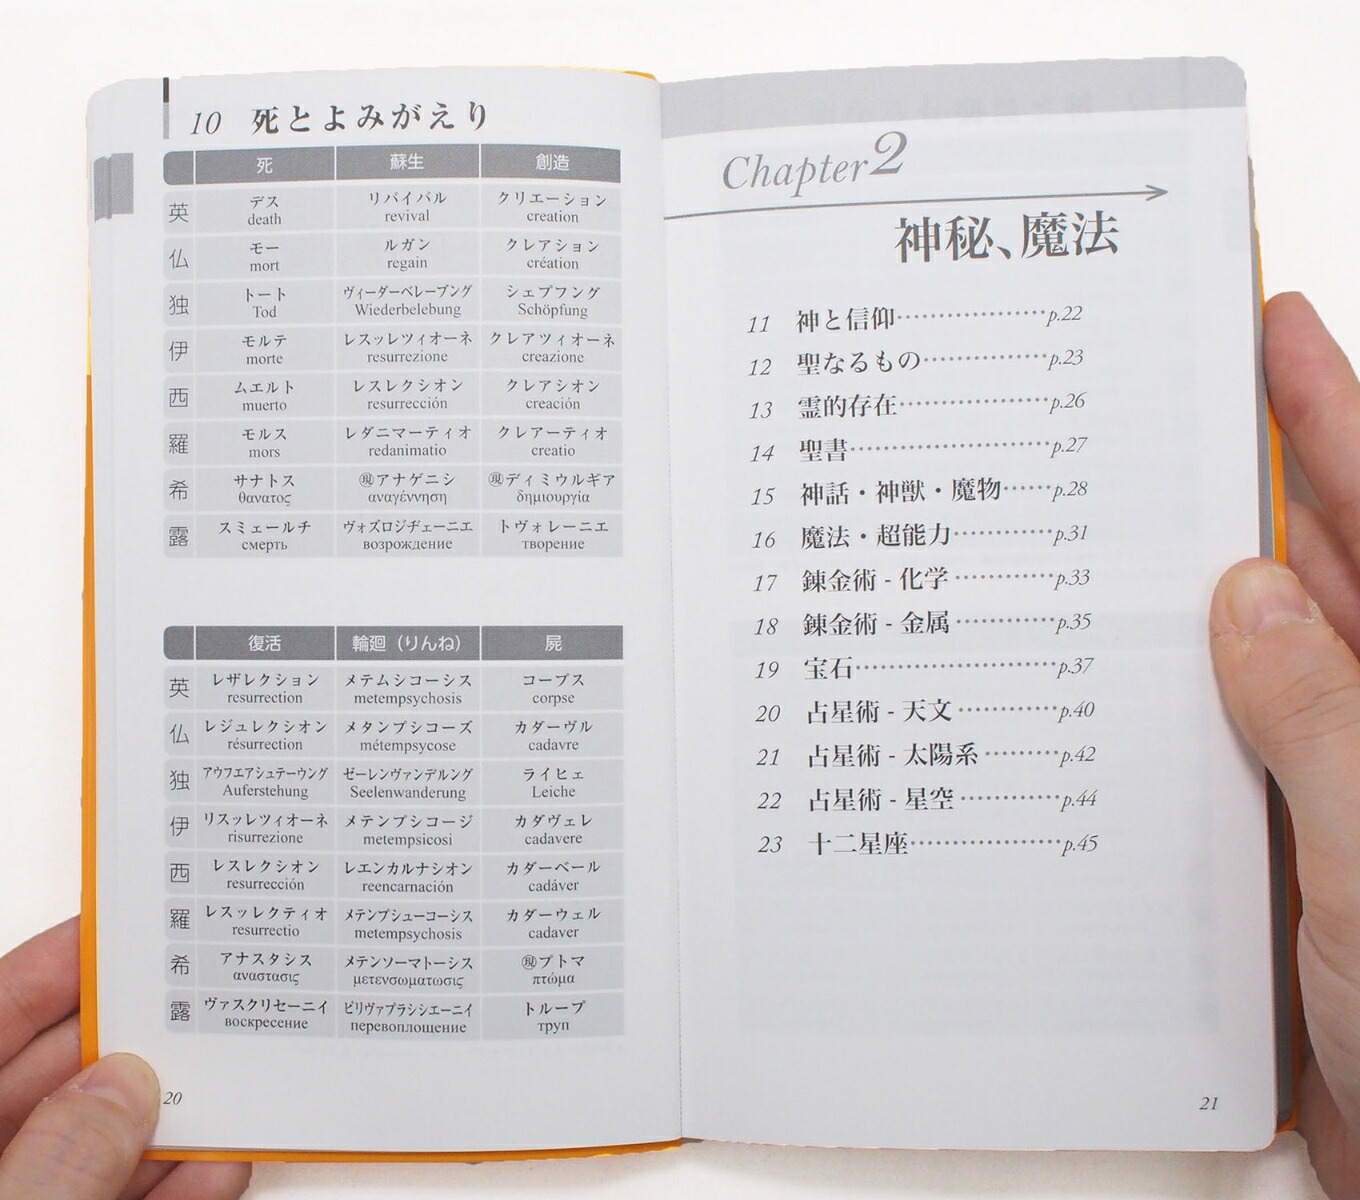 10 死とよみがえり
死 蘇生 創造
英 デス リバイバル クリエーション
death revival creation
仏 モー ルガン クレアション
mort regain création
独 トート ヴィーダーベレーブング シェプフング
Tod Wiederbelebung Schöpfung
伊 モルテ レスッレツィオーネ クレアツィオーネ
morte resurrezione creazione
西 ムエルト レスレクシオン クレアシオン
muerto resurrección creación
羅 モルス レダニマーティオ クレアーティオ
mors redanimatio creatio
希 サナトス 現アナゲニシ 現ディミウルギア
θανατος αναγέννηση δημιουργία
露 スミェールチ ヴォズロジヂェーニエ トヴォレーニエ
смерть возрождение творение
復活 輪廻（りんね） 屍
英 レザレクション メテムシコーシス コープス
resurrection metempsychosis corpse
仏 レジュレクシオン メタンプシコーズ カダーヴル
résurrection métempsycose cadavre
独 アウフエアシュテーウング ゼーレンヴァンデルング ライヒェ
Auferstehung Seelenwanderung Leiche
伊 リスッレツィオーネ メテンプシコージ カダヴェレ
risurrezione metempsicosi cadavere
西 レスレクシオン レエンカルナシオン カダーベール
resurrección reencarnación cadáver
羅 レスッレクティオ メテンプシューコーシス カダーウェル
resurrectio metempsychosis cadaver
希 アナスタシス メテンソーマトーシス 現プトマ
αναστασις μετενσωματωσις πτώμα
露 ヴァスクリセーニイ ピリヴァプラシシエーニイ トループ
воскресение перевоплощение труп
20
Chapter 2
神秘、魔法
11 神と信仰………………p.22
12 聖なるもの……………p.23
13 霊的存在………………p.26
14 聖書……………………p.27
15 神話・神獣・魔物……p.28
16 魔法・超能力…………p.31
17 錬金術 - 化学…………p.33
18 錬金術 - 金属…………p.35
19 宝石……………………p.37
20 占星術 - 天文…………p.40
21 占星術 - 太陽系………p.42
22 占星術 - 星空…………p.44
23 十二星座………………p.45
21